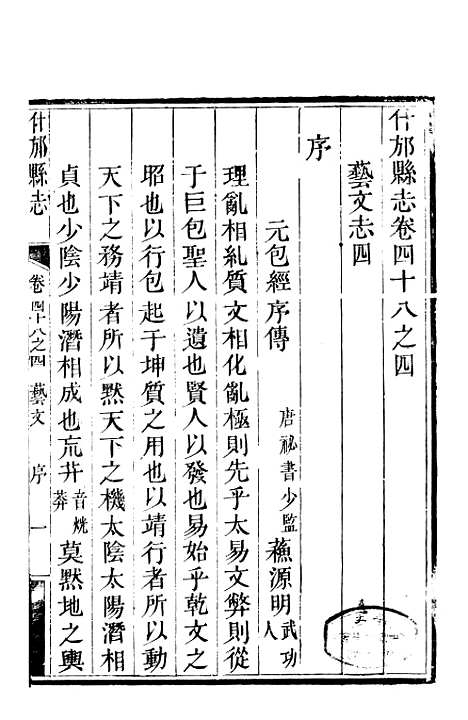 什邡縣志卷四十八之四
藝文志四
序
元包經序傳 唐祕書少監 蘓源明 武功人
理亂相糺質文相化亂極則先乎太易文弊則從
于巨包聖人以遺也賢人以發也易始乎乾文之
昭也以行包起于坤質之用也以靖行者所以動
天下之務靖者所以黙天下之機太陰太陽潛相
貞也少陰少陽潛相成也巟茻 音㡃莽 莫黙地之輿
什邡縣志 卷四十八之四 藝文 序 一